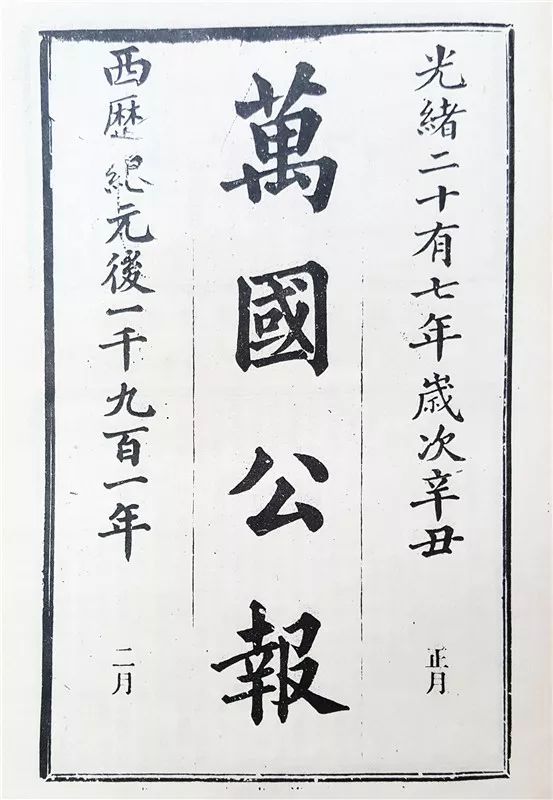 光緒二十有七年歲次辛丑
正月
萬國公報
西歷紀元後一千九百一年
二月